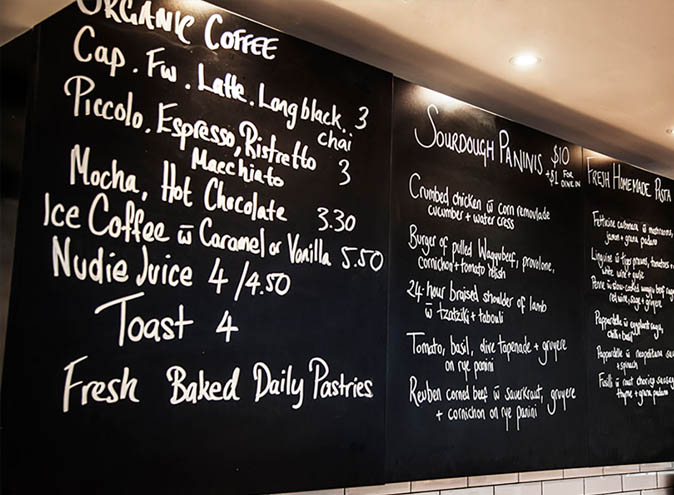 ORGANIC COFFEE
Cap. Fw. Latte. Long black.. 3
chai
Piccolo. Espresso, Ristretto 3
Macchiato
Mocha, Hot Chocolate 3.30
Ice Coffee w̄ Caramel or Vanilla 5.50
Nudie Juice 4/4.50
Toast 4
Fresh Baked Daily Pastries
SOURDOUGH PANINIS $10
+$1 FOR
DINE IN
Crumbed chicken w̄ corn remoulade
cucumber + water cress
Burger of pulled Wagyu beef, provolone,
cornichon + tomato relish
24 hour braised shoulder of lamb
w̄ tzatziki + tabouli
Tomato, basil, olive tapenade + gruyere
on rye panini
Reuben corned beef w̄ sauerkraut, gruyere
+ cornichon on rye panini
FRESH HOMEMADE PASTA
Fettucine carbonara w̄ mushrooms,
jamon + grana padano
Linguine w̄ tiger prawns, tomatoes
white wine + garlic
Penne w̄ slow-cooked wagyu beef
red wine, sage + gruyere
Pappardelle w̄ eggplant sugo,
chilli + basil
Pappardelle w̄ neapolitana
+ spinach
Fusilli w̄ roast chorizo
thyme + grana padano